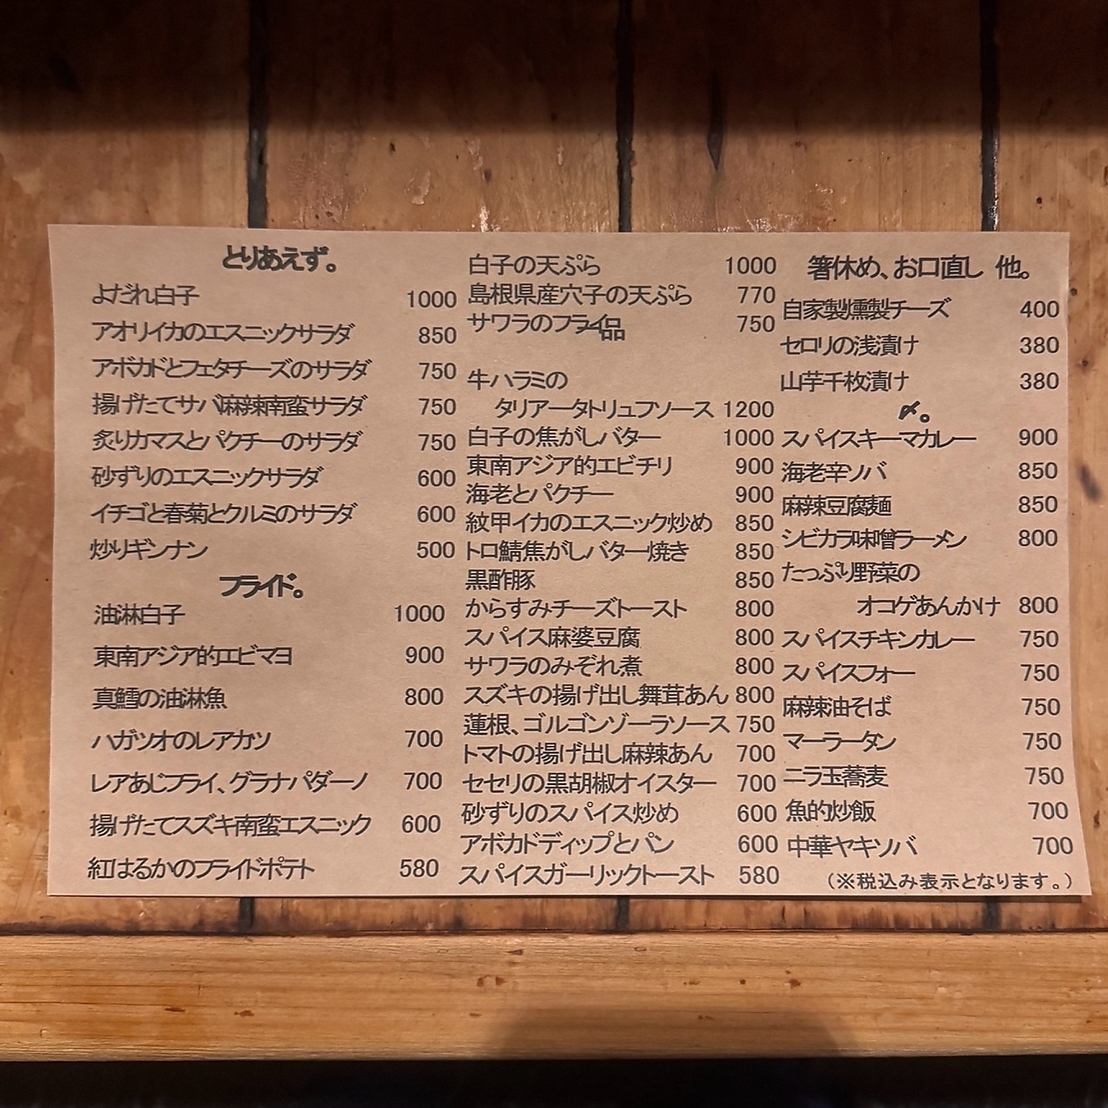 とりあえず。
よだれ白子 1000
アオリイカのエスニックサラダ 850
アボカドとフェタチーズのサラダ 750
揚げたてサバ麻辣南蛮サラダ 750
炙りカマスとパクチーのサラダ 750
砂ずりのエスニックサラダ 600
イチゴと春菊とクルミのサラダ 600
炒りギンナン 500
フライド。
油淋白子 1000
東南アジア的エビマヨ 900
真鱈の油淋魚 800
ハガツオのレアカツ 700
レアあじフライ、グラナパダーノ 700
揚げたてスズキ南蛮エスニック 600
紅はるかのフライドポテト 580
白子の天ぷら 1000
島根県産穴子の天ぷら 770
サワラのフライ 750
品
牛ハラミの
タリアータトリュフソース 1200
白子の焦がしバター 1000
東南アジア的エビチリ 900
海老とパクチー 900
紋甲イカのエスニック炒め 850
トロ鯖焦がしバター焼き 850
黒酢豚 850
からすみチーズトースト 800
スパイス麻婆豆腐 800
サワラのみぞれ煮 800
スズキの揚げ出し舞茸あん 800
蓮根、ゴルゴンゾーラソース 750
トマトの揚げ出し麻辣あん 700
セセリの黒胡椒オイスター 700
砂ずりのスパイス炒め 600
アボカドディップとパン 600
スパイスガーリックトースト 580
箸休め、お口直し 他。
自家製燻製チーズ 400
セロリの浅漬け 380
山芋千枚漬け 380
〆。
スパイスキーマカレー 900
海老辛ソバ 850
麻辣豆腐麺 850
シビカラ味噌ラーメン 800
たっぷり野菜の
オコゲあんかけ 800
スパイスチキンカレー 750
スパイスフォー 750
麻辣油そば 750
マーラータン 750
ニラ玉蕎麦 750
魚的炒飯 700
中華ヤキソバ 700
(※税込み表示となります。)